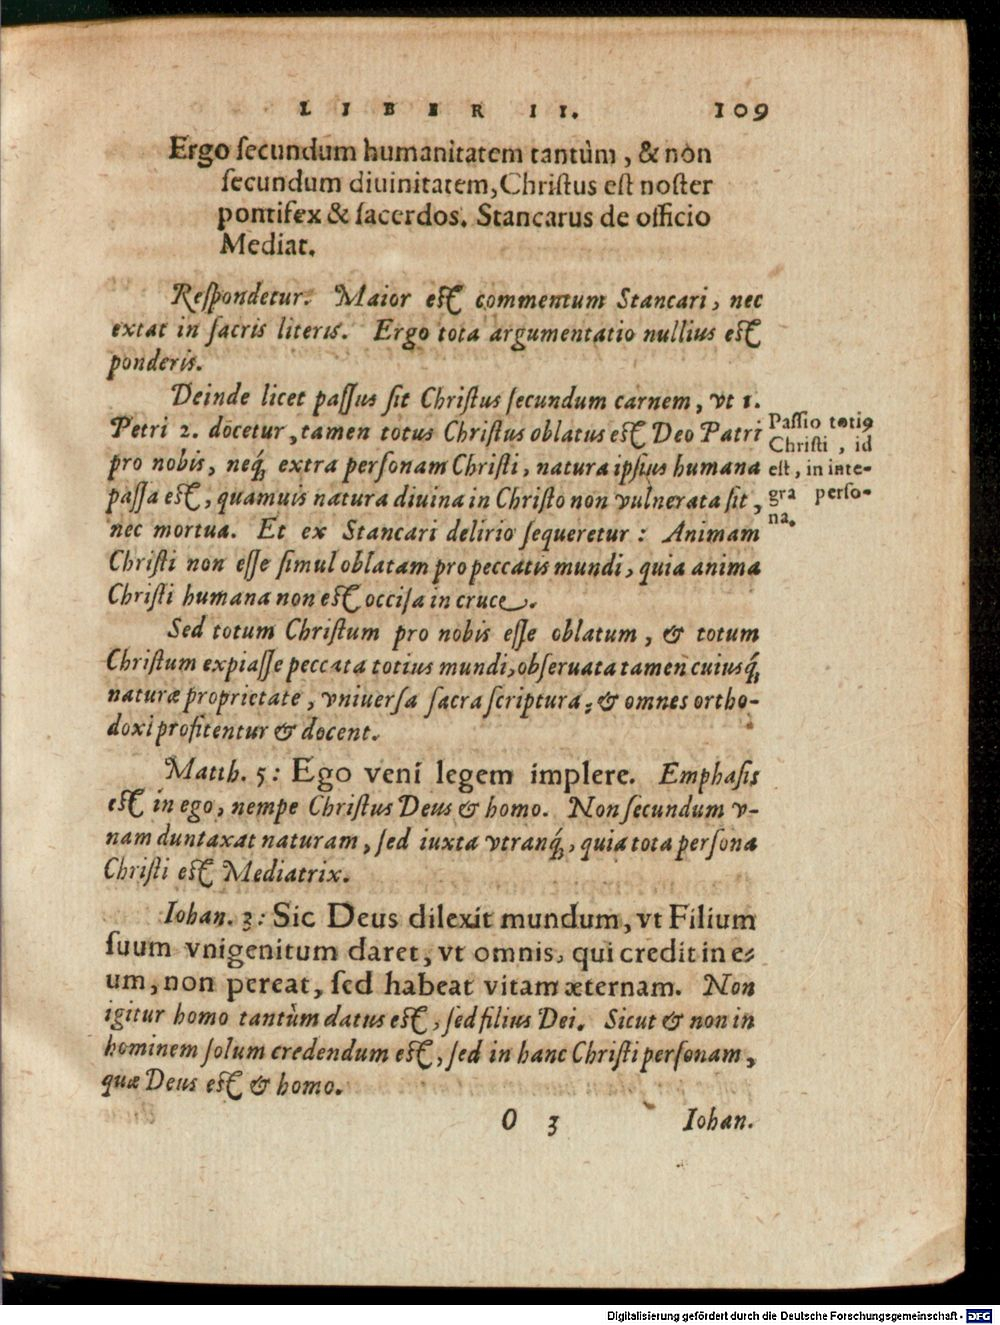 LIBER II. 109
Ergo ſecundum humanitatem tantùm, & non
ſecundum diuinitatem, Chriſtus eſt noſter
pontifex & ſacerdos. Stancarus de officio
Mediat.
Reſpondetur. Maior eſt commentum Stancari, nec
extat in ſacris literis. Ergo tota argumentatio nullius eſt
ponderis.
Deinde licet paſſus ſit Chriſtus ſecundum carnem, vt 1.
Petri 2. docetur, tamen totus Chriſtus oblatus eſt Deo Patri
pro nobis, neq́; extra perſonam Chriſti, natura ipſius humana
paſſa eſt, quamuis natura diuina in Chriſto non vulnerata ſit,
nec mortua. Et ex Stancari delirio ſequeretur: Animam
Chriſti non eſſe ſimul oblatam pro peccatis mundi, quia anima
Chriſti humana non eſt occiſa in cruce.
Paſſio totiꝰ
Chriſti, id
eſt, in inte-
gra perſo-
na.
Sed totum Chriſtum pro nobis eſſe oblatum, & totum
Chriſtum expiaſſe peccata totius mundi, obſeruata tamen cuiusq́;
naturæ proprietate, vniuerſa ſacra ſcriptura: & omnes ortho-
doxi profitentur & docent.
Matth. 5: Ego veni legem implere. Emphaſis
eſt in ego, nempe Chriſtus Deus & homo. Non ſecundum v-
nam duntaxat naturam, ſed iuxta vtranq́;, quia tota perſona
Chriſti eſt Mediatrix.
Iohan. 3: Sic Deus dilexit mundum, vt Filium
ſuum vnigenitum daret, vt omnis, qui credit in e-
um, non pereat, ſed habeat vitam æternam. Non
igitur homo tantùm datus eſt, ſed filius Dei. Sicut & non in
hominem ſolum credendum eſt, ſed in hanc Chriſti perſonam,
quæ Deus eſt & homo.
O 3 Iohan.
Digitalisierung gefördert durch die Deutsche Forschungsgemeinschaft - DFG